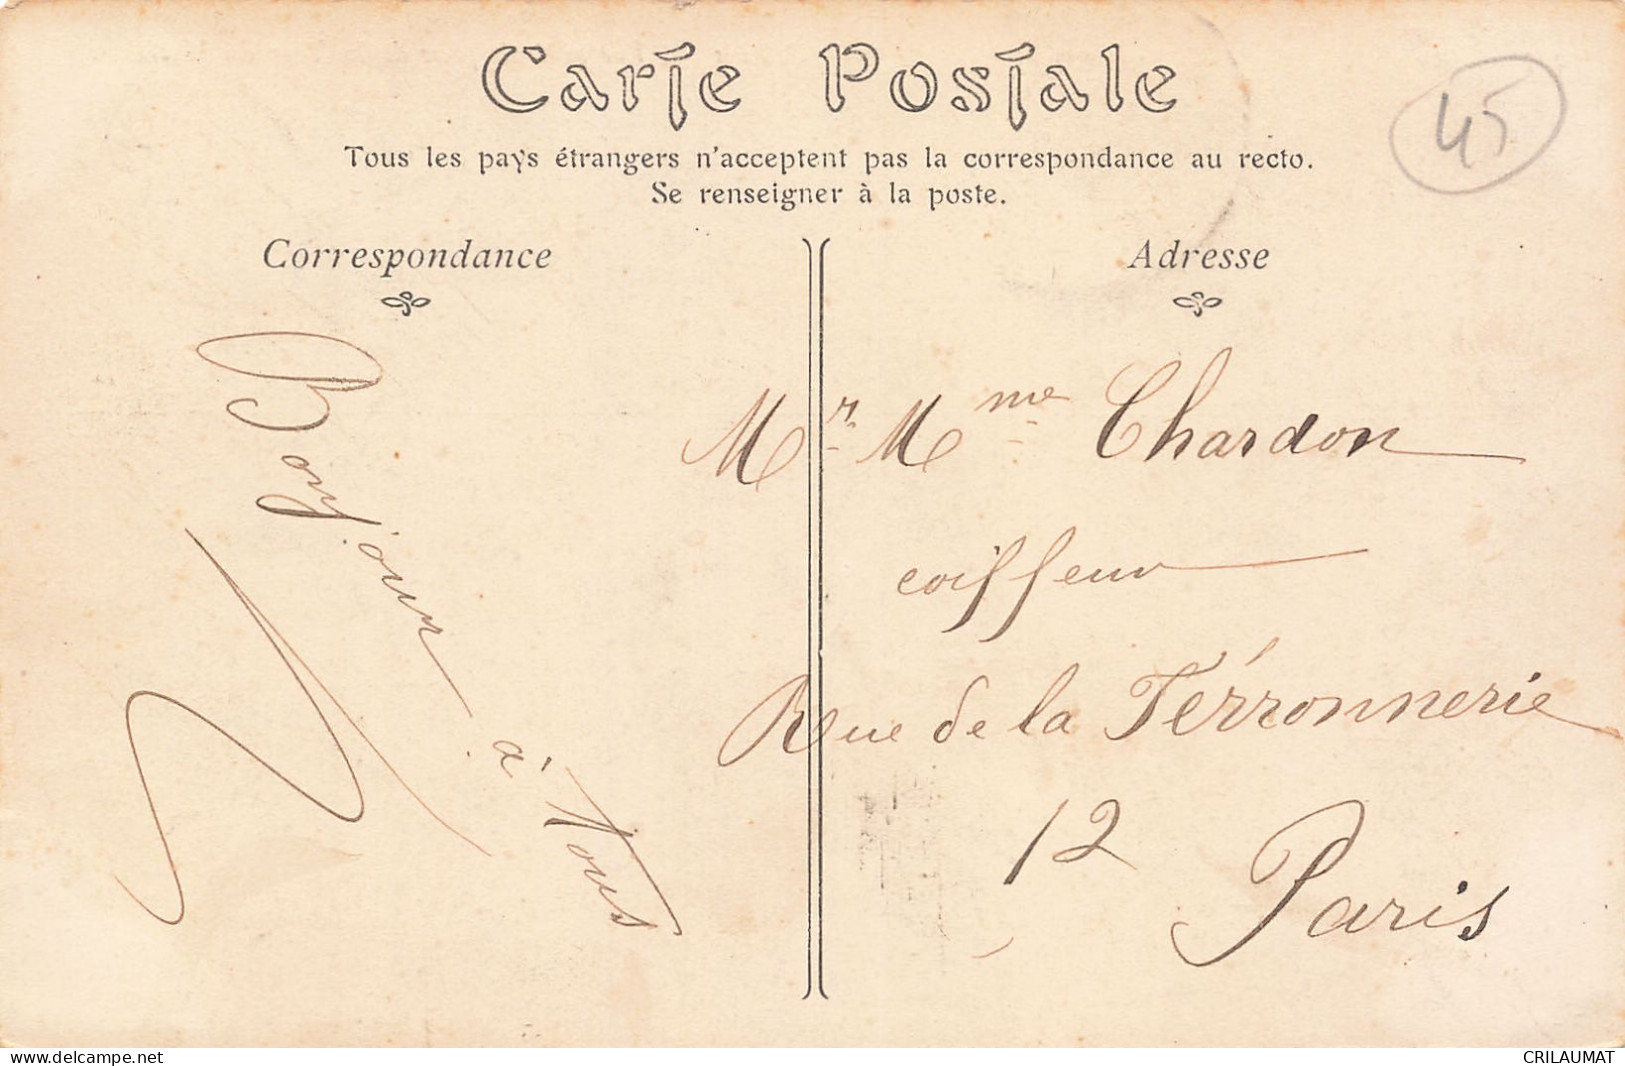 Carte Postale
45
Tous les pays étrangers n'acceptent pas la correspondance au recto.
Se renseigner à la poste.
Correspondance
Adresse
Bonjour à Tous
Mr Mme Chardon
coiffeur
Rue de la Férronnerie
12
Paris
www.delcampe.net
CRILAUMAT